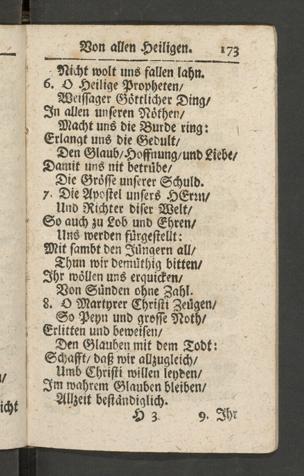 Von allen Heiligen. 173
Nicht wolt uns fallen lahn.
6. O Heilige Propheten/
Weissager Göttlicher Ding/
In allen unseren Nöthen/
Macht uns die Burde ring:
Erlangt uns die Gedult/
Den Glaub/Hoffnung/und Liebe/
Damit uns nit betrübe/
Die Grösse unserer Schuld.
7. Die Apostel unsers HErrn/
Und Richter diser Welt/
So auch zu Lob und Ehren/
Uns werden fürgestellt:
Mit sambt den Jüngern all/
Thun wir demüthig bitten/
Ihr wöllen uns erquicken/
Von Sünden ohne Zahl.
8. O Martyrer Christi Zeügen/
So Peyn und grosse Noth/
Erlitten und beweisen/
Den Glauben mit dem Todt:
Schafft/ daß wir allzugleich/
Umb Christi willen leyden/
Im wahrem Glauben bleiben/
Allzeit beständiglich.
H 3 9. Ihr
/
icht